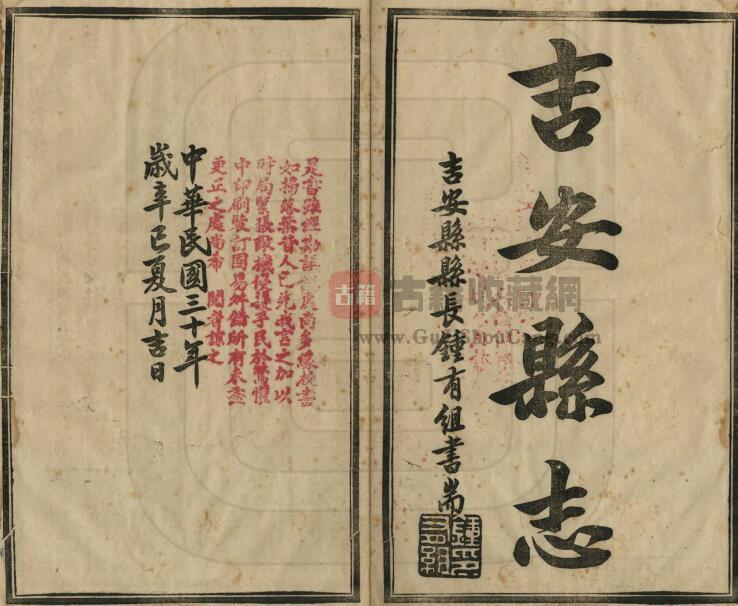 吉安縣志
吉安縣縣長鍾有組書耑
是書雖經勘誤處尚多緣校書
如掃落葉昔人已先我言之加以
時局緊張敵機侵擾手民於驚懼
中印刷裝訂固易舛錯所有未盡
更正之處尚希 閱者諒之
中華民國三十年
歲辛巳夏月吉日
古籍
古籍收藏網